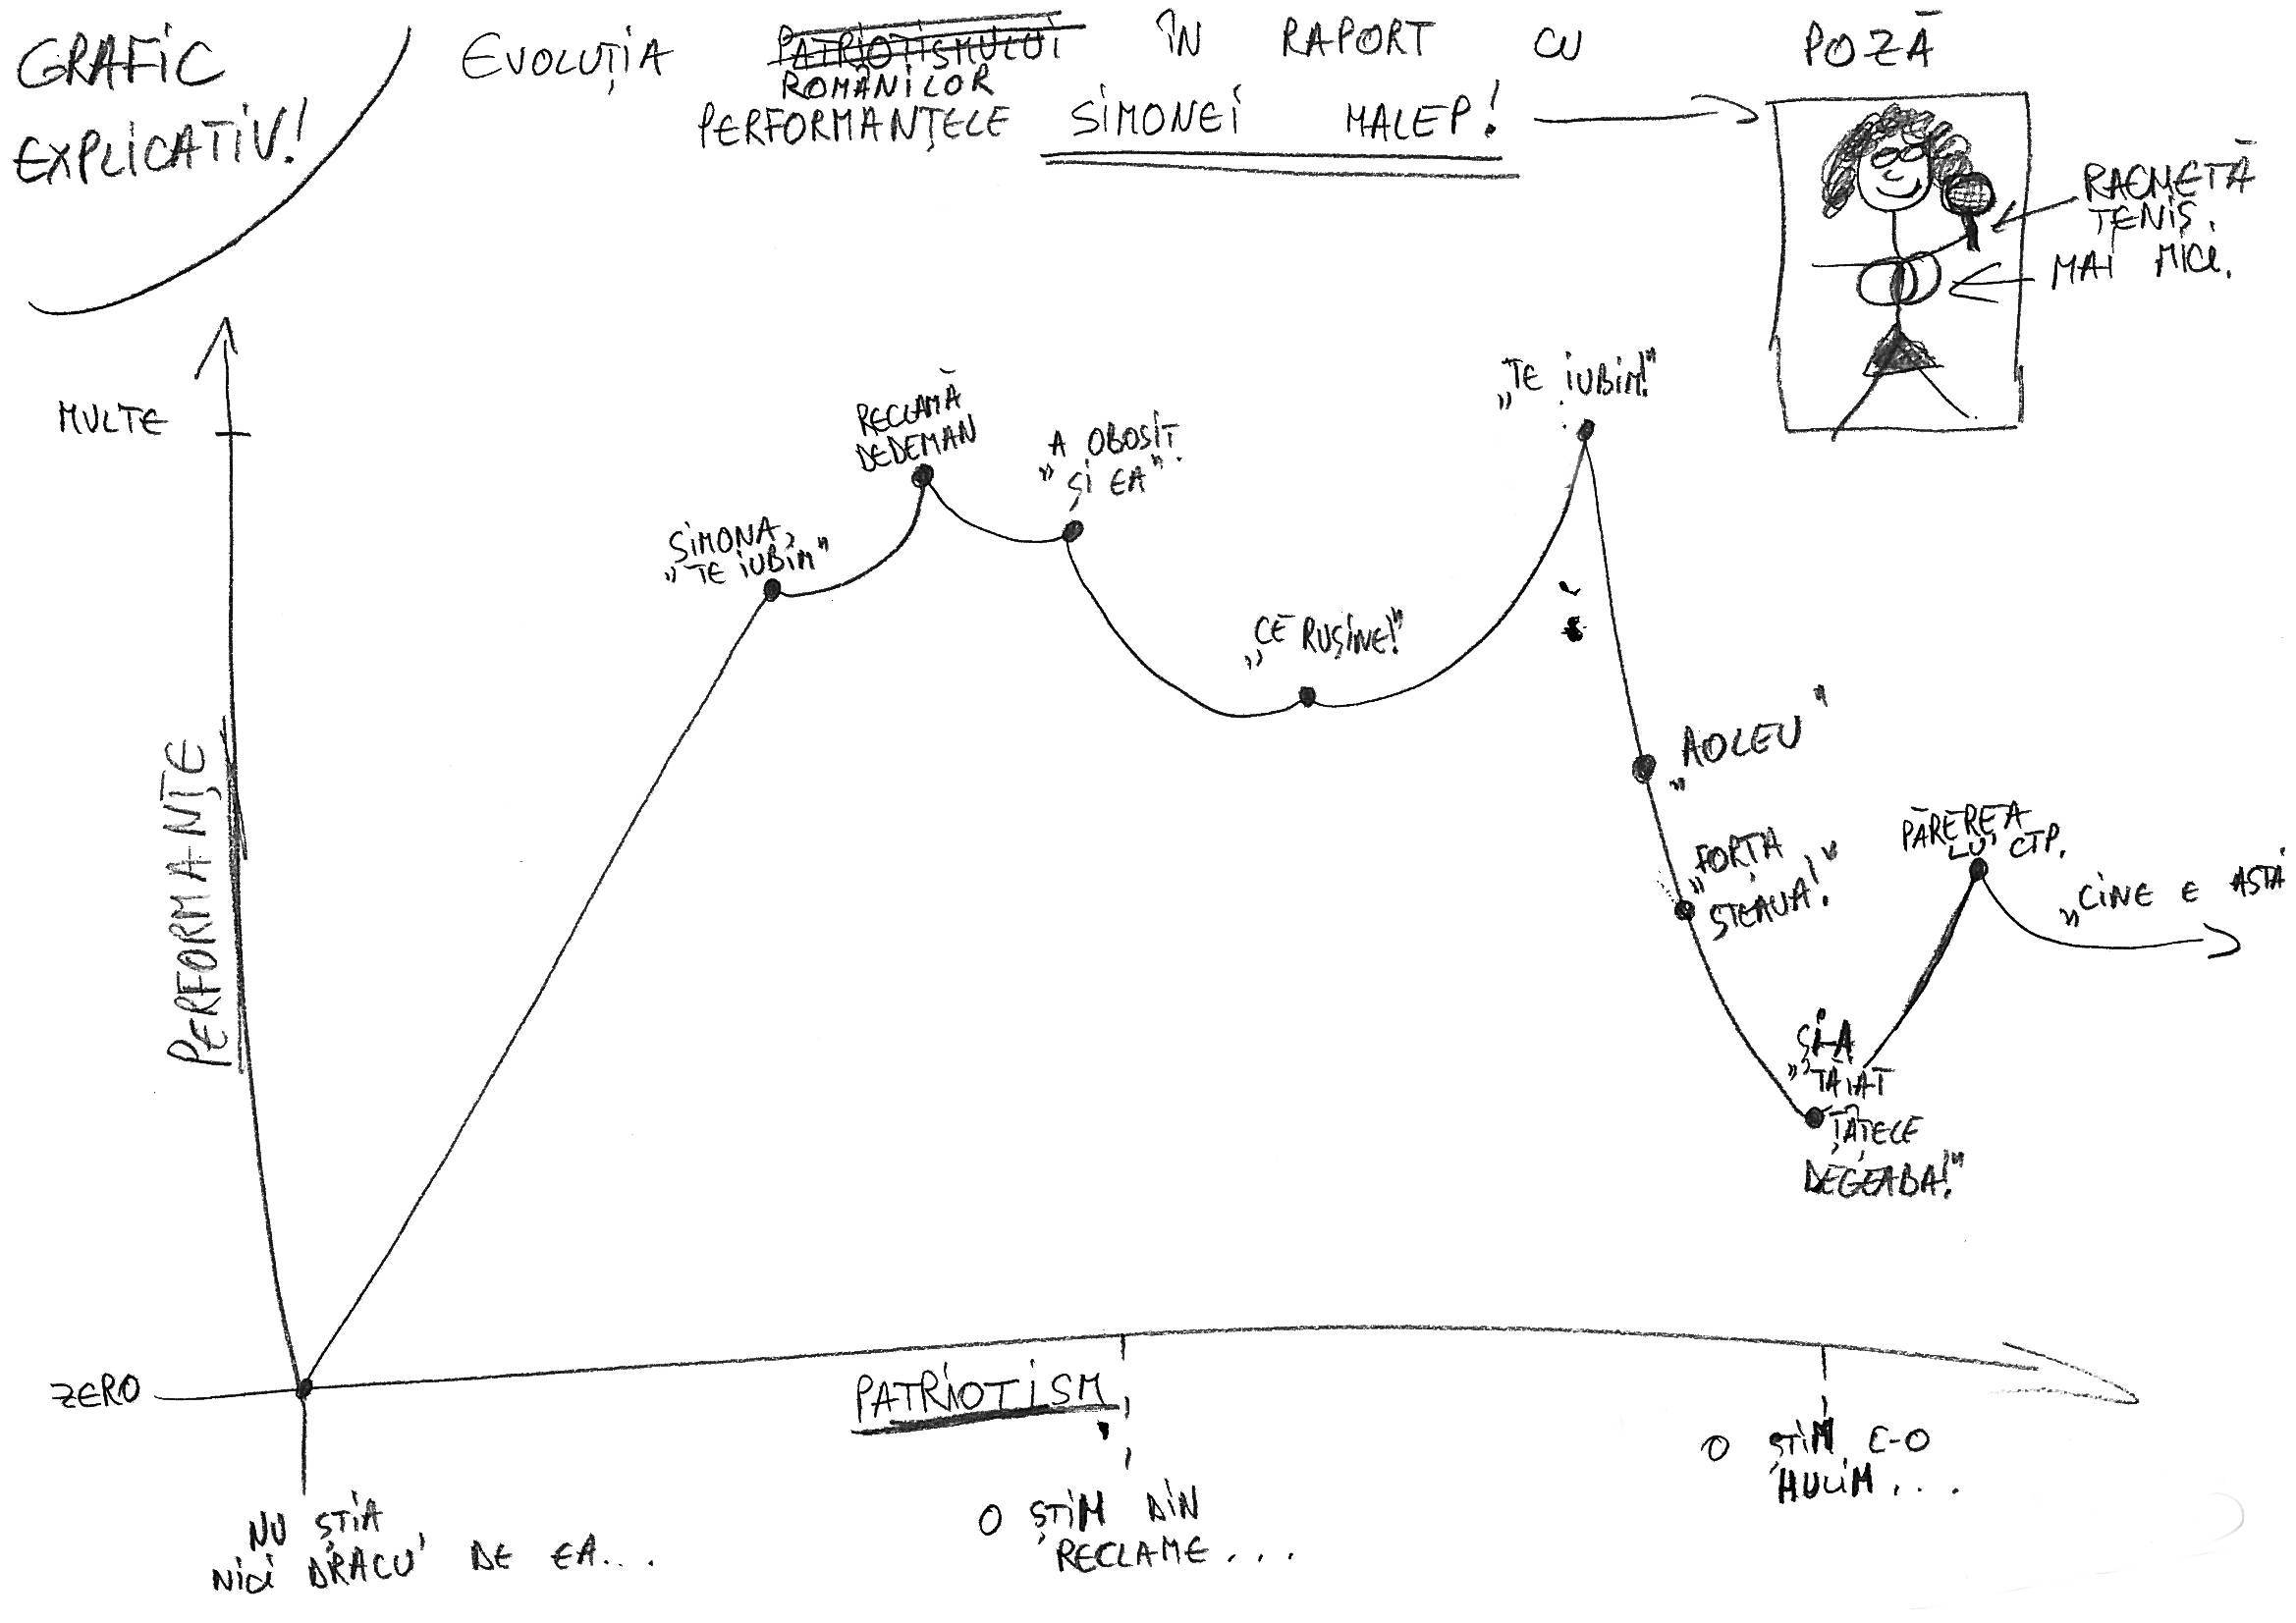 GRAFIC
EXPLICATIV!
EVOLUȚIA PATRIOTISMULUI ÎN RAPORT CU POZĂ
ROMÂNILOR
PERFORMANȚELE SIMONEI HALEP!
RACHETĂ
TENIS.
MAI MICI.
MULTE
PERFORMANȚE
ZERO
SIMONA,
„TE IUBIM”
RECLAMĂ
DEDEMAN
„A OBOSIT
ȘI EA”.
„CE RUȘINE!”
„TE IUBIM!”
„AOLEU”
„FORȚA
STEAUA!”
„ȘI-A
TĂIAT
ȚÂȚELE
DEGEABA!”
PĂREREA
LU' CTP.
„CINE E ASTA
PATRIOTISM
NU ȘTIA
NICI DRACU' DE EA...
O ȘTIM DIN
RECLAME...
O ȘTIM, C-O
HULIM...